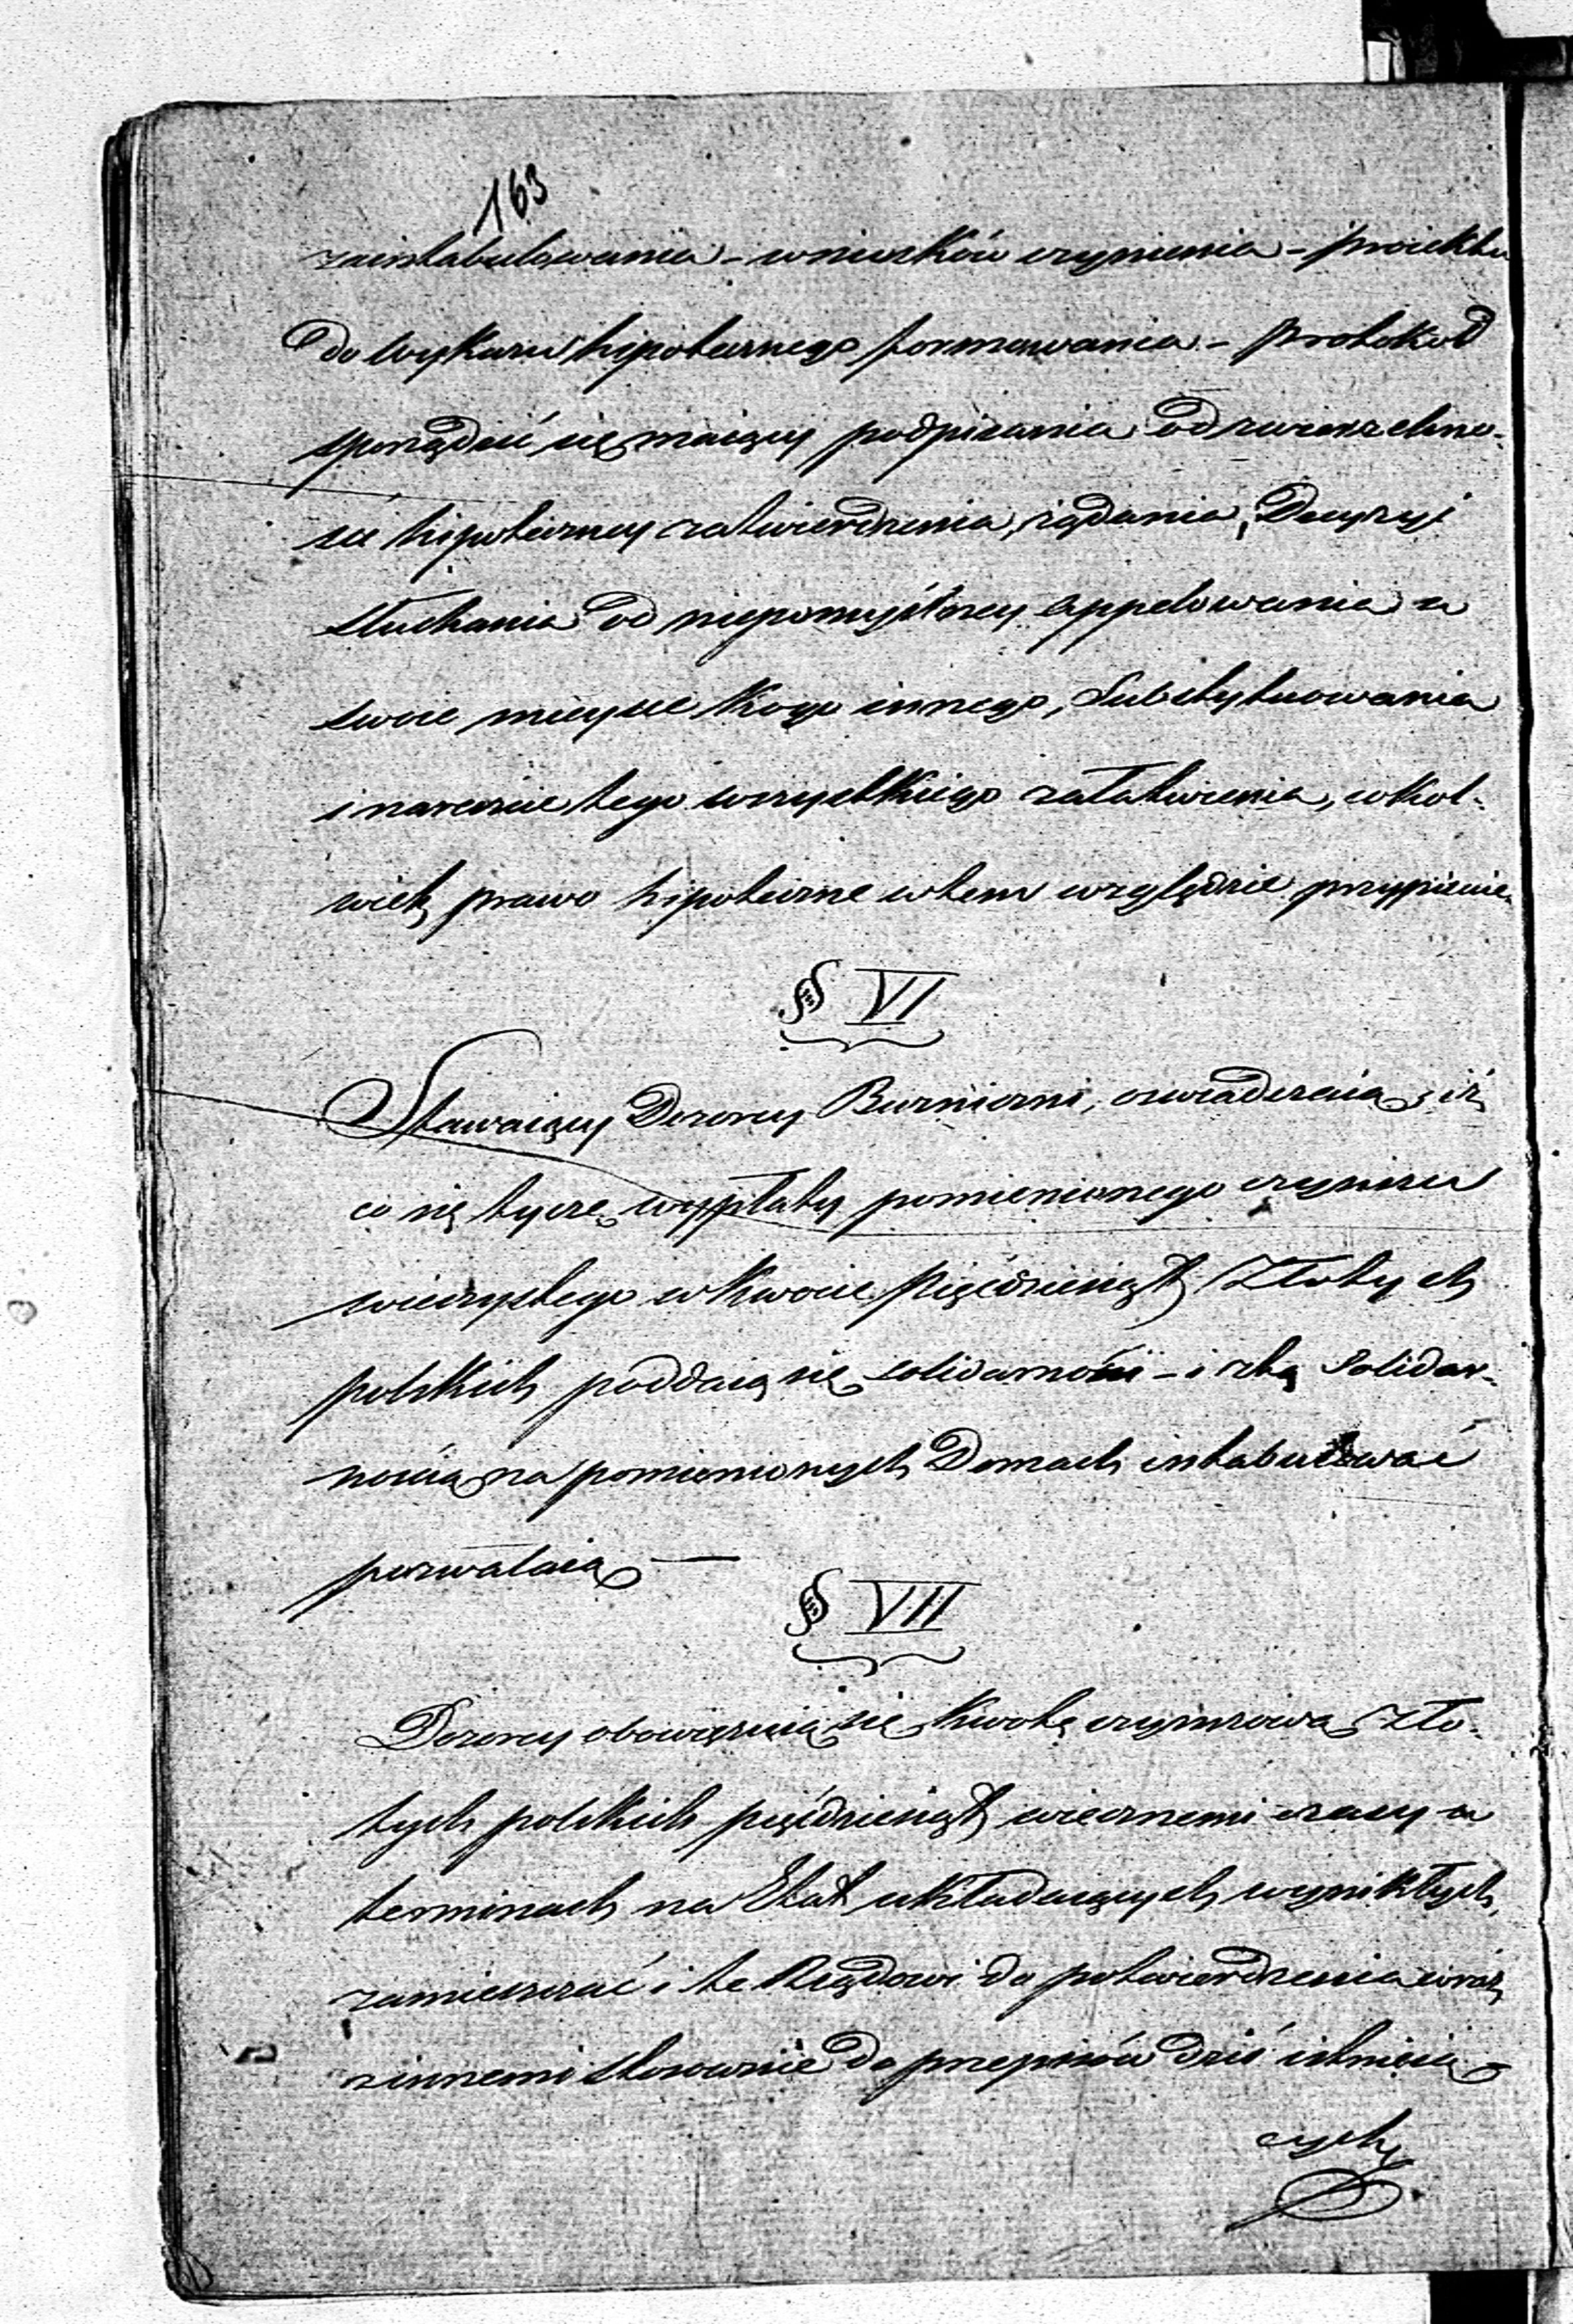 163
zaintabulowania - wniosków czynienia - proiektu
do wykazu hipotecznego formowania - protokoł
sporządzić się maiący podpisania od zwierzchno-
sci hipoteczney zatwierdzenia, żądania, Decyzyi
słuchania od niepomyślney appelowania w
swoie mieysce kogo innego, Substytuowania
i nareszcie tego wszystkiego załatwienia, cokol-
wiek prawo hipoteczne w tem względzie przypisuie
§ VI
Stawaiący Dozorcy Burniczni, oswiadczaią, iż
co się tycze wypłaty pomienionego czynszu
wieczystego w kwocie pięćdziesiąt Złotych
polskich poddaią się solidarności - i z tą Solidar-
nością na pomienionych Domach intabulować
pozwalaią —
§ VII
Dozorcy obowięzuią się kwotę czynszową zło-
tych polskich pięćdziesiąt wiecznemi czasy w
terminach na Etat układaiących wynikłych,
zamieszczać i te Rządowi do potwierdzenia wraz
z innemi stosownie do przepisów dziś istnieią
cych